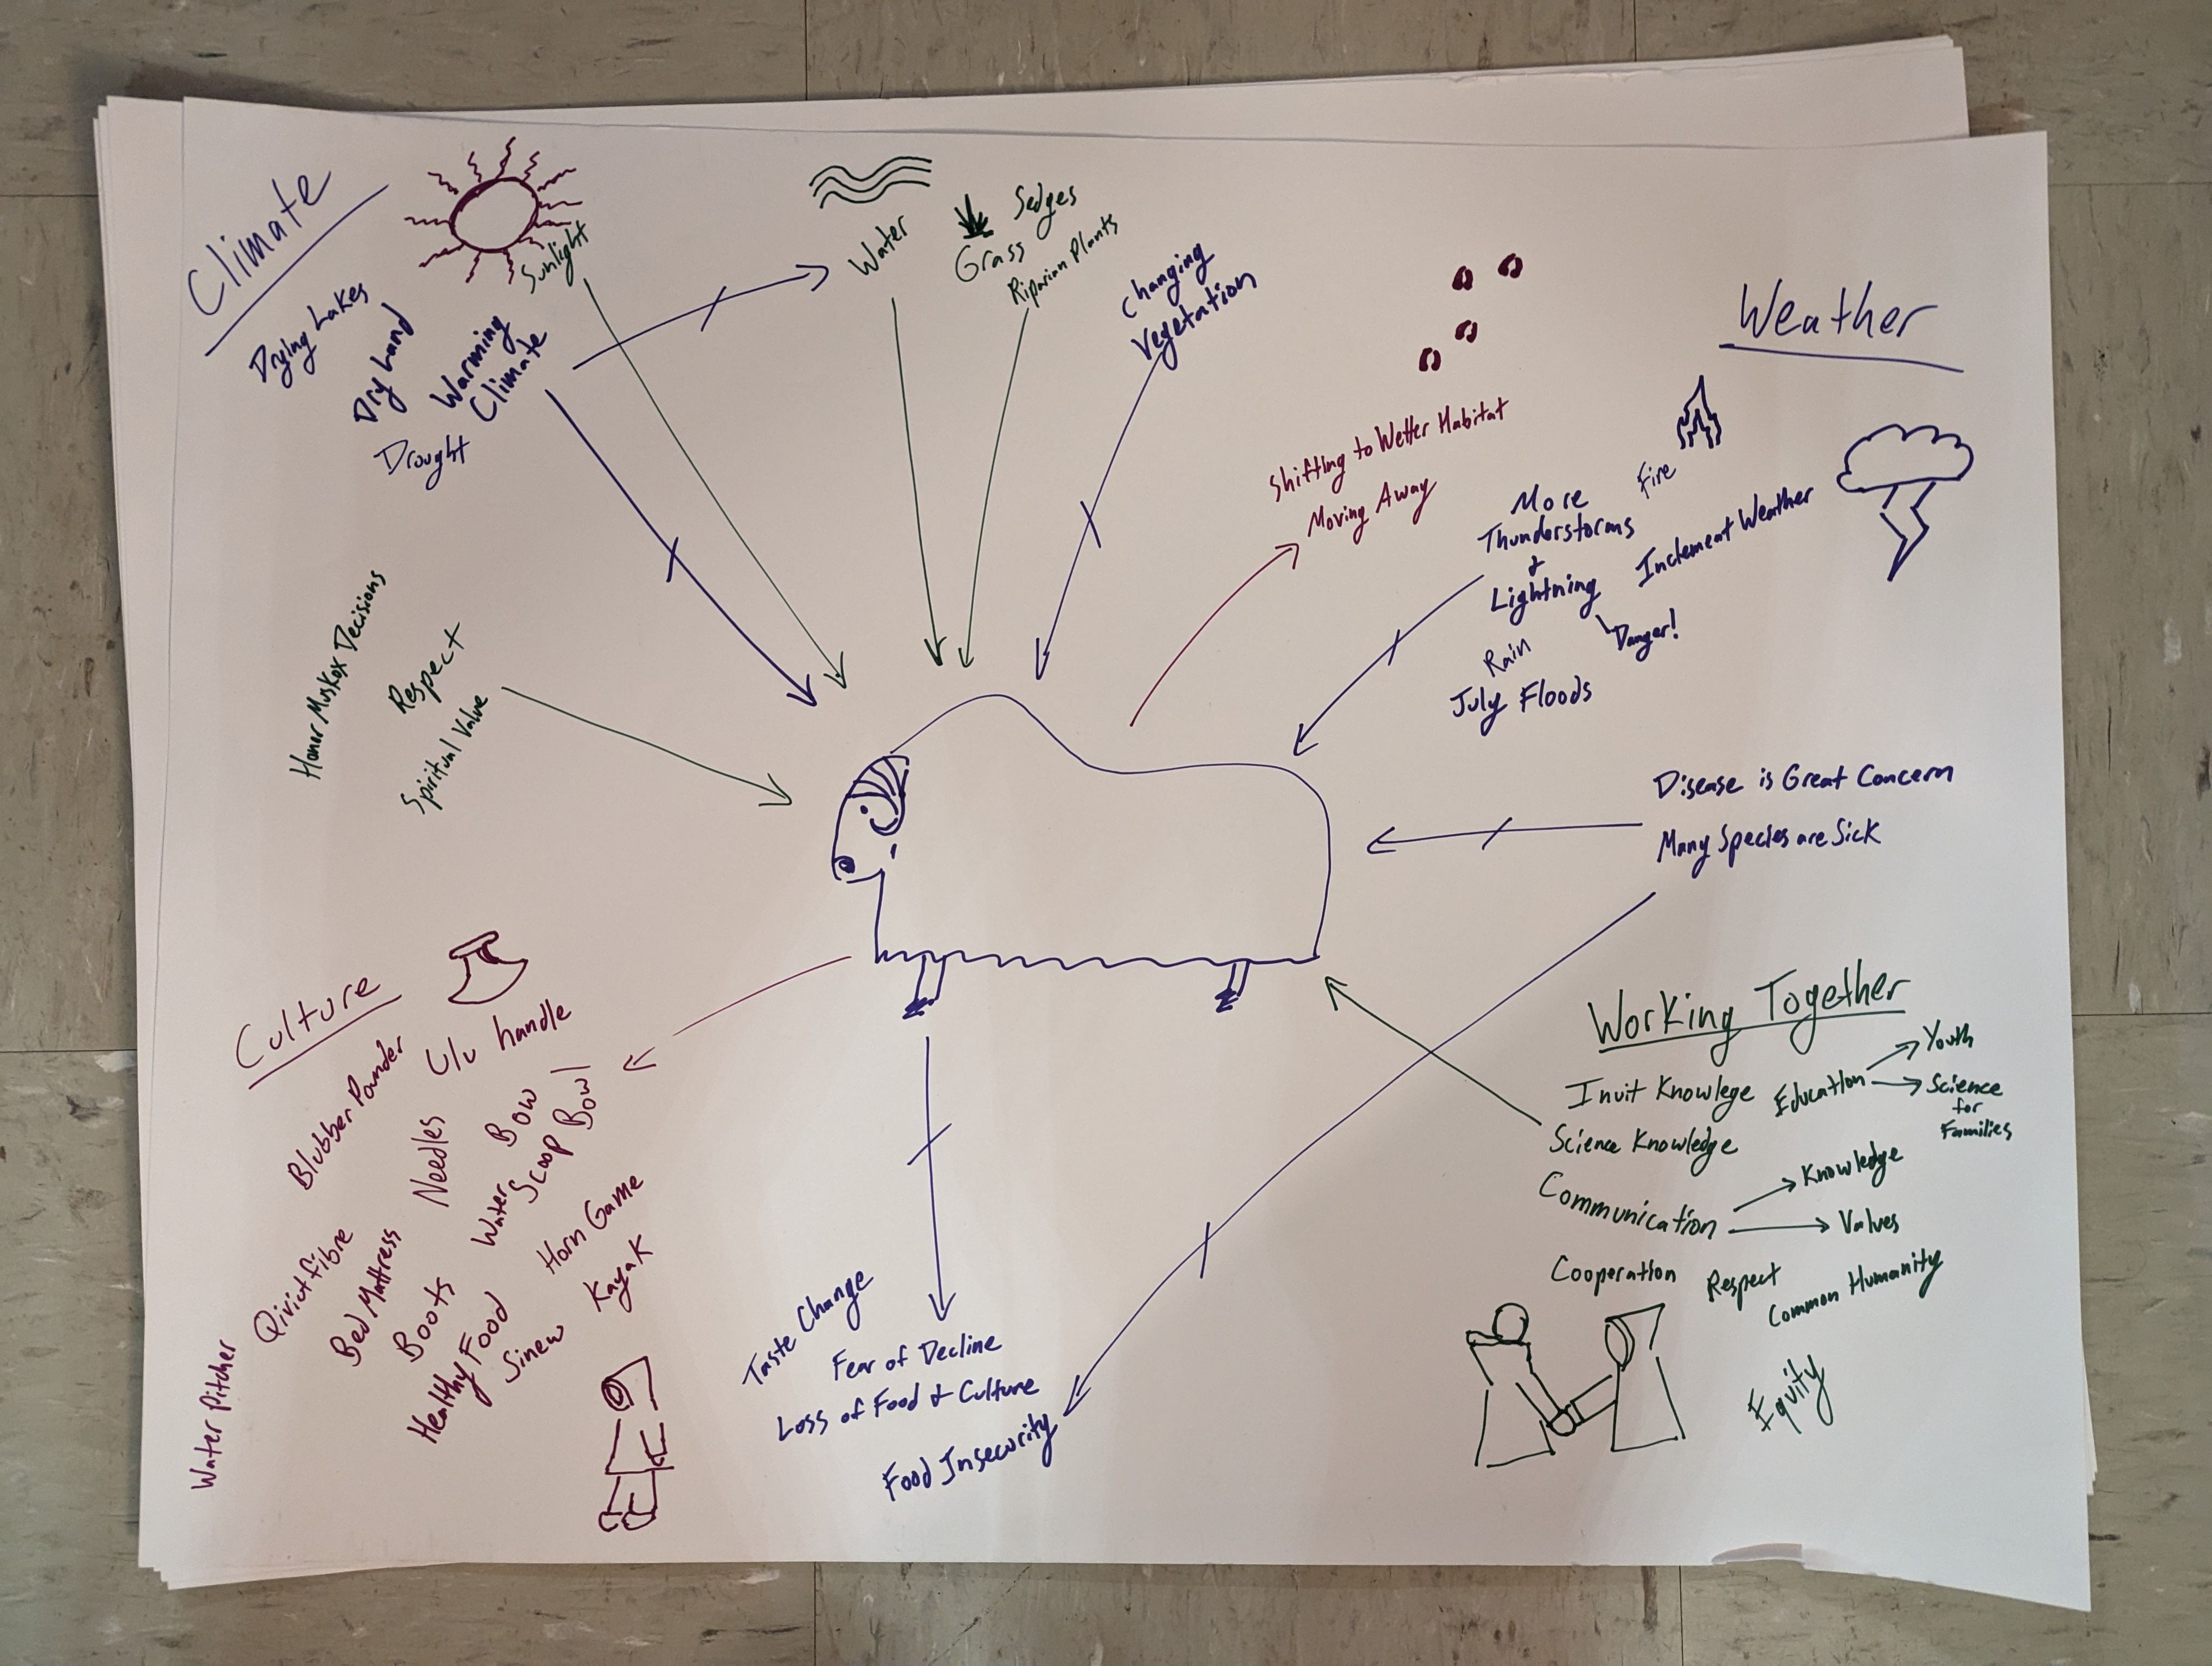 Climate
Sunlight
Drying Lakes
Dry Land
Warming
Climate
Drought
Water
Sedges
Grass
Riparian Plants
Changing
Vegetation
Shifting to Wetter Habitat
Moving Away
Weather
Fire
More
Thunderstorms
&
Lightning
Inclement Weather
Danger!
Rain
July Floods
Honor Muskox Decisions
Respect
Spiritual Value
Disease is Great Concern
Many Species are Sick
Culture
Ulu handle
Blubber Pounder
Needles
Bow
Water Scoop Bowl
Qiviut fibre
Bed Mattress
Boots
Horn Game
Kayak
Healthy Food
Sinew
Water Pitcher
Taste Change
Fear of Decline
Loss of Food & Culture
Food Insecurity
Working Together
Inuit Knowlege
Education
Youth
Science
for
Families
Science Knowledge
Communication
Knowledge
Values
Cooperation
Respect
Common Humanity
Equity